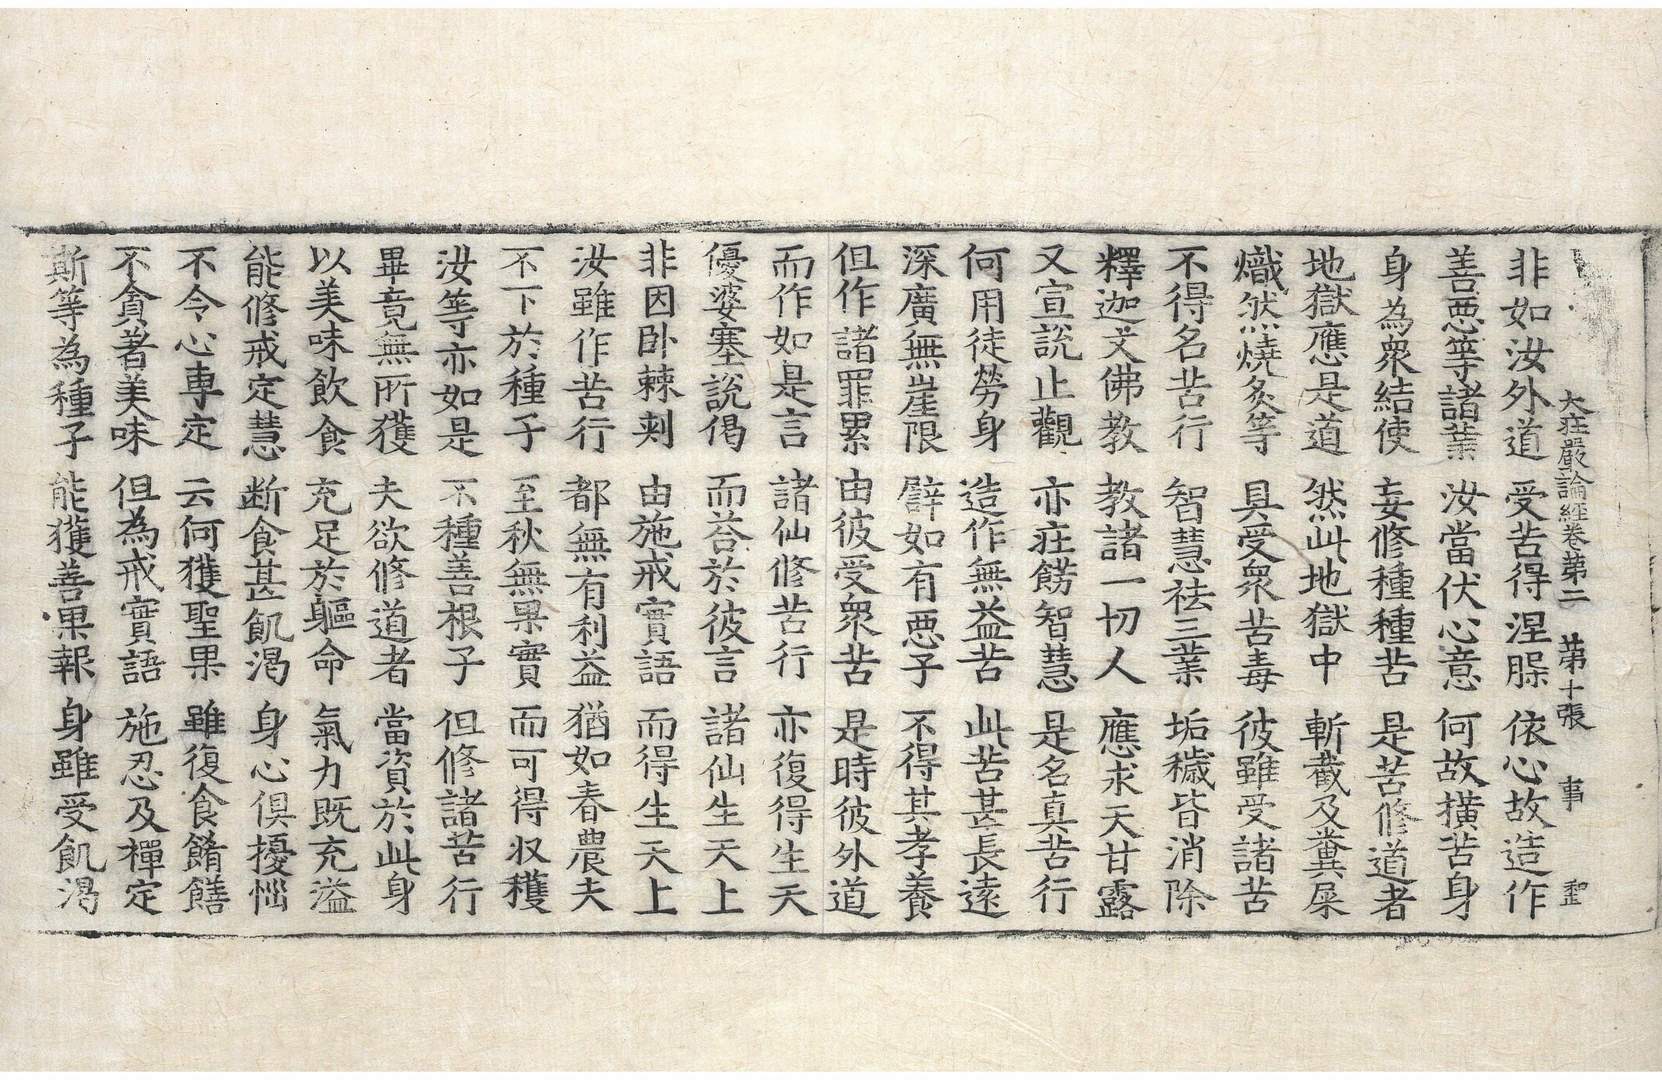 大莊嚴論經卷第二　第十張　事　聖
非如汝外道　受苦得涅槃　依心故造作
善惡等諸業　汝當伏心意　何故橫苦身
身為衆結使　妄修種種苦　是苦修道者
地獄應是道　然此地獄中　斬截及糞屎
熾然燒炙等　具受衆苦毒　彼雖受諸苦
不得名苦行　智慧祛三業　垢穢皆消除
釋迦文佛教　教諸一切人　應求天甘露
又宣說止觀　亦莊餝智慧　是名真苦行
何用徒勞身　造作無益苦　此苦甚長遠
深廣無崖限　譬如有惡子　不得其孝養
但作諸罪累　由彼受衆苦　是時彼外道
而作如是言　諸仙修苦行　亦復得生天
優婆塞說偈　而荅於彼言　諸仙生天上
非因卧棘刺　由施戒實語　而得生天上
汝雖作苦行　都無有利益　猶如春農夫
不下於種子　至秋無果實　而可得収穫
汝等亦如是　不種善根子　但修諸苦行
畢竟無所獲　夫欲修道者　當資於此身
以美味飲食　充足於軀命　氣力既充溢
能修戒定慧　断食甚飢渴　身心俱擾惱
不令心専定　云何獲聖果　雖復食餚饍
不貪著美味　但為戒實語　施忍及禪定
斯等為種子　能獲善果報　身雖受飢渴